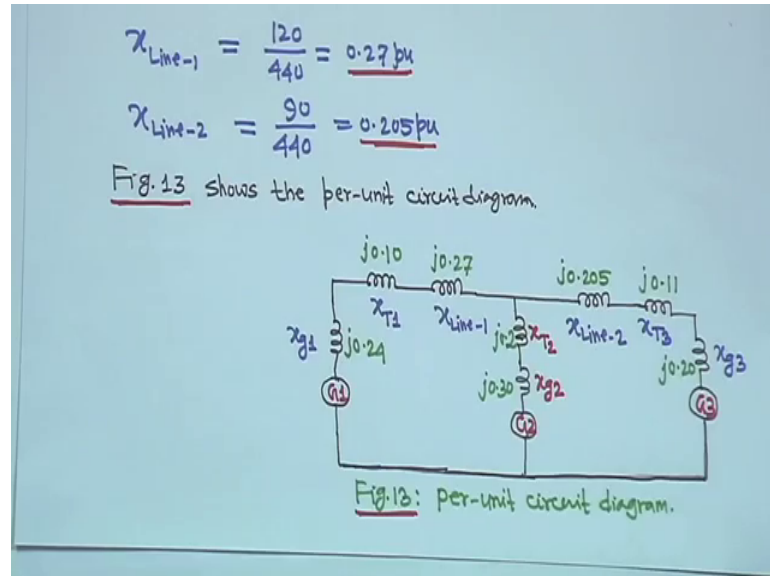 x Line-1 = 120/440 = 0.27 pu
x Line-2 = 90/440 = 0.205 pu
Fig. 13 shows the per-unit circuit diagram.
j0.10 j0.27 j0.205 j0.11
xT1 xLine-1 xLine-2 xT3
j0.2 xT2
xg1 j0.24
j0.30 xg2
j0.20 xg3
G1 G2 G3
Fig.13: per-unit circuit diagram.